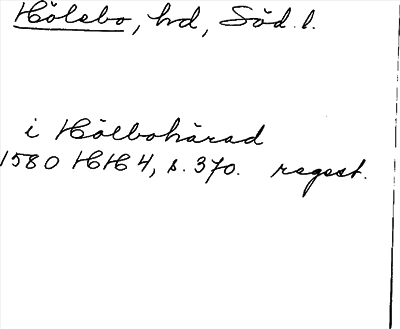 Hölebo, hd, Söd.l.
i Hölbohärad
1580 HH 4, s. 370. regest.